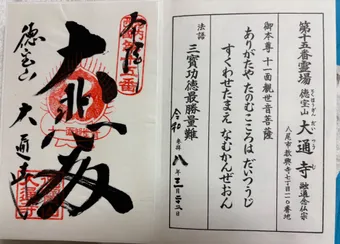 第十五番霊場
徳宝山 大通寺 融通念仏宗
とくほうざん だいつうじ
八尾市教興寺七丁目一一〇番地
御本尊 十一面観世音菩薩
ありがたや たのむこころは だいつうじ
すくわせたまえ なむかんぜおん
法語
三寶功徳最勝量難
令和 参拝 八年三月二二日
奉拝
大悲殿
徳宝山
大通寺